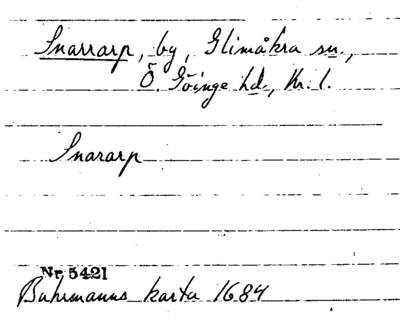 Snarrarp, by, Glimåkra sn.,
Ö. Göinge hd., Kr. l.
Snararp
Nr 5421
Buhrmanns karta 1684